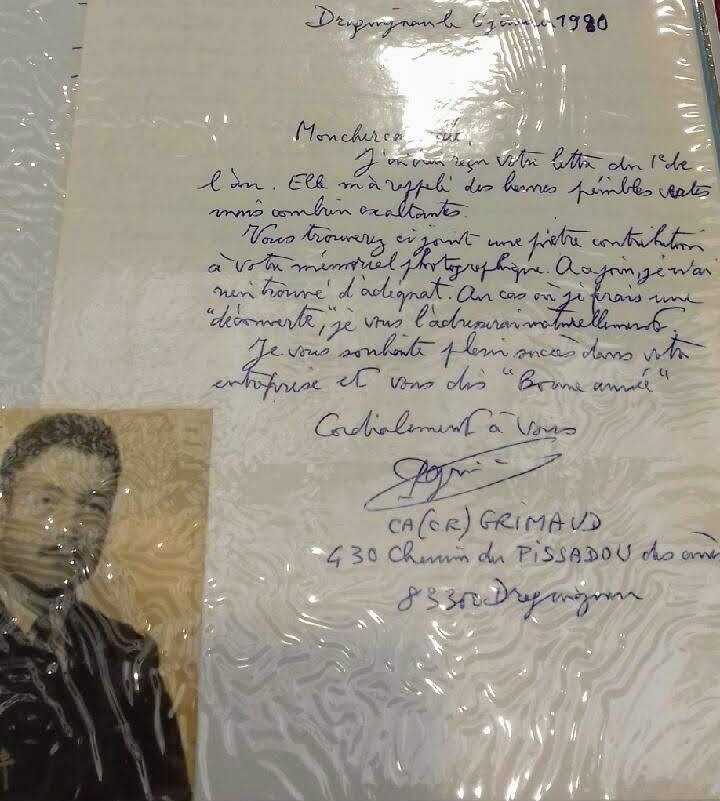 Draguignan le 6 janvier 1980
Mon cher
J'ai bien reçu votre lettre du 1er de
l'an. Elle m'a rappelé des heures pénibles certes
mais combien exaltantes.
Vous trouverez ci joint une piètre contribution
à votre mémorial photographique. A ce jour, je n'ai
rien trouvé d'adéquat. Au cas où je ferais une
"découverte," je vous l'adresserai naturellement.
Je vous souhaite plein succès dans votre
entreprise et vous dis "Bonne année"
Cordialement à Vous
CA(C.R) GRIMAUD
430 Chemin du PISSADOU des
83300 Draguignan